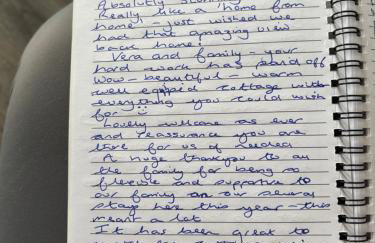 Absolutely
Really like a "home from
home" - just wished we
had that amazing view
back home!
Vera and family - your
hard work has paid off
Wow - beautiful - warm
well eqippid cottage with
everything you could wish
for
Lovely welcome as ever
and reassurance you are
there for us if needed
A huge thankyou to all
the family for being so
flexible and supportive to
our family on our several
stays here this year - this
meant a lot
It has been great to